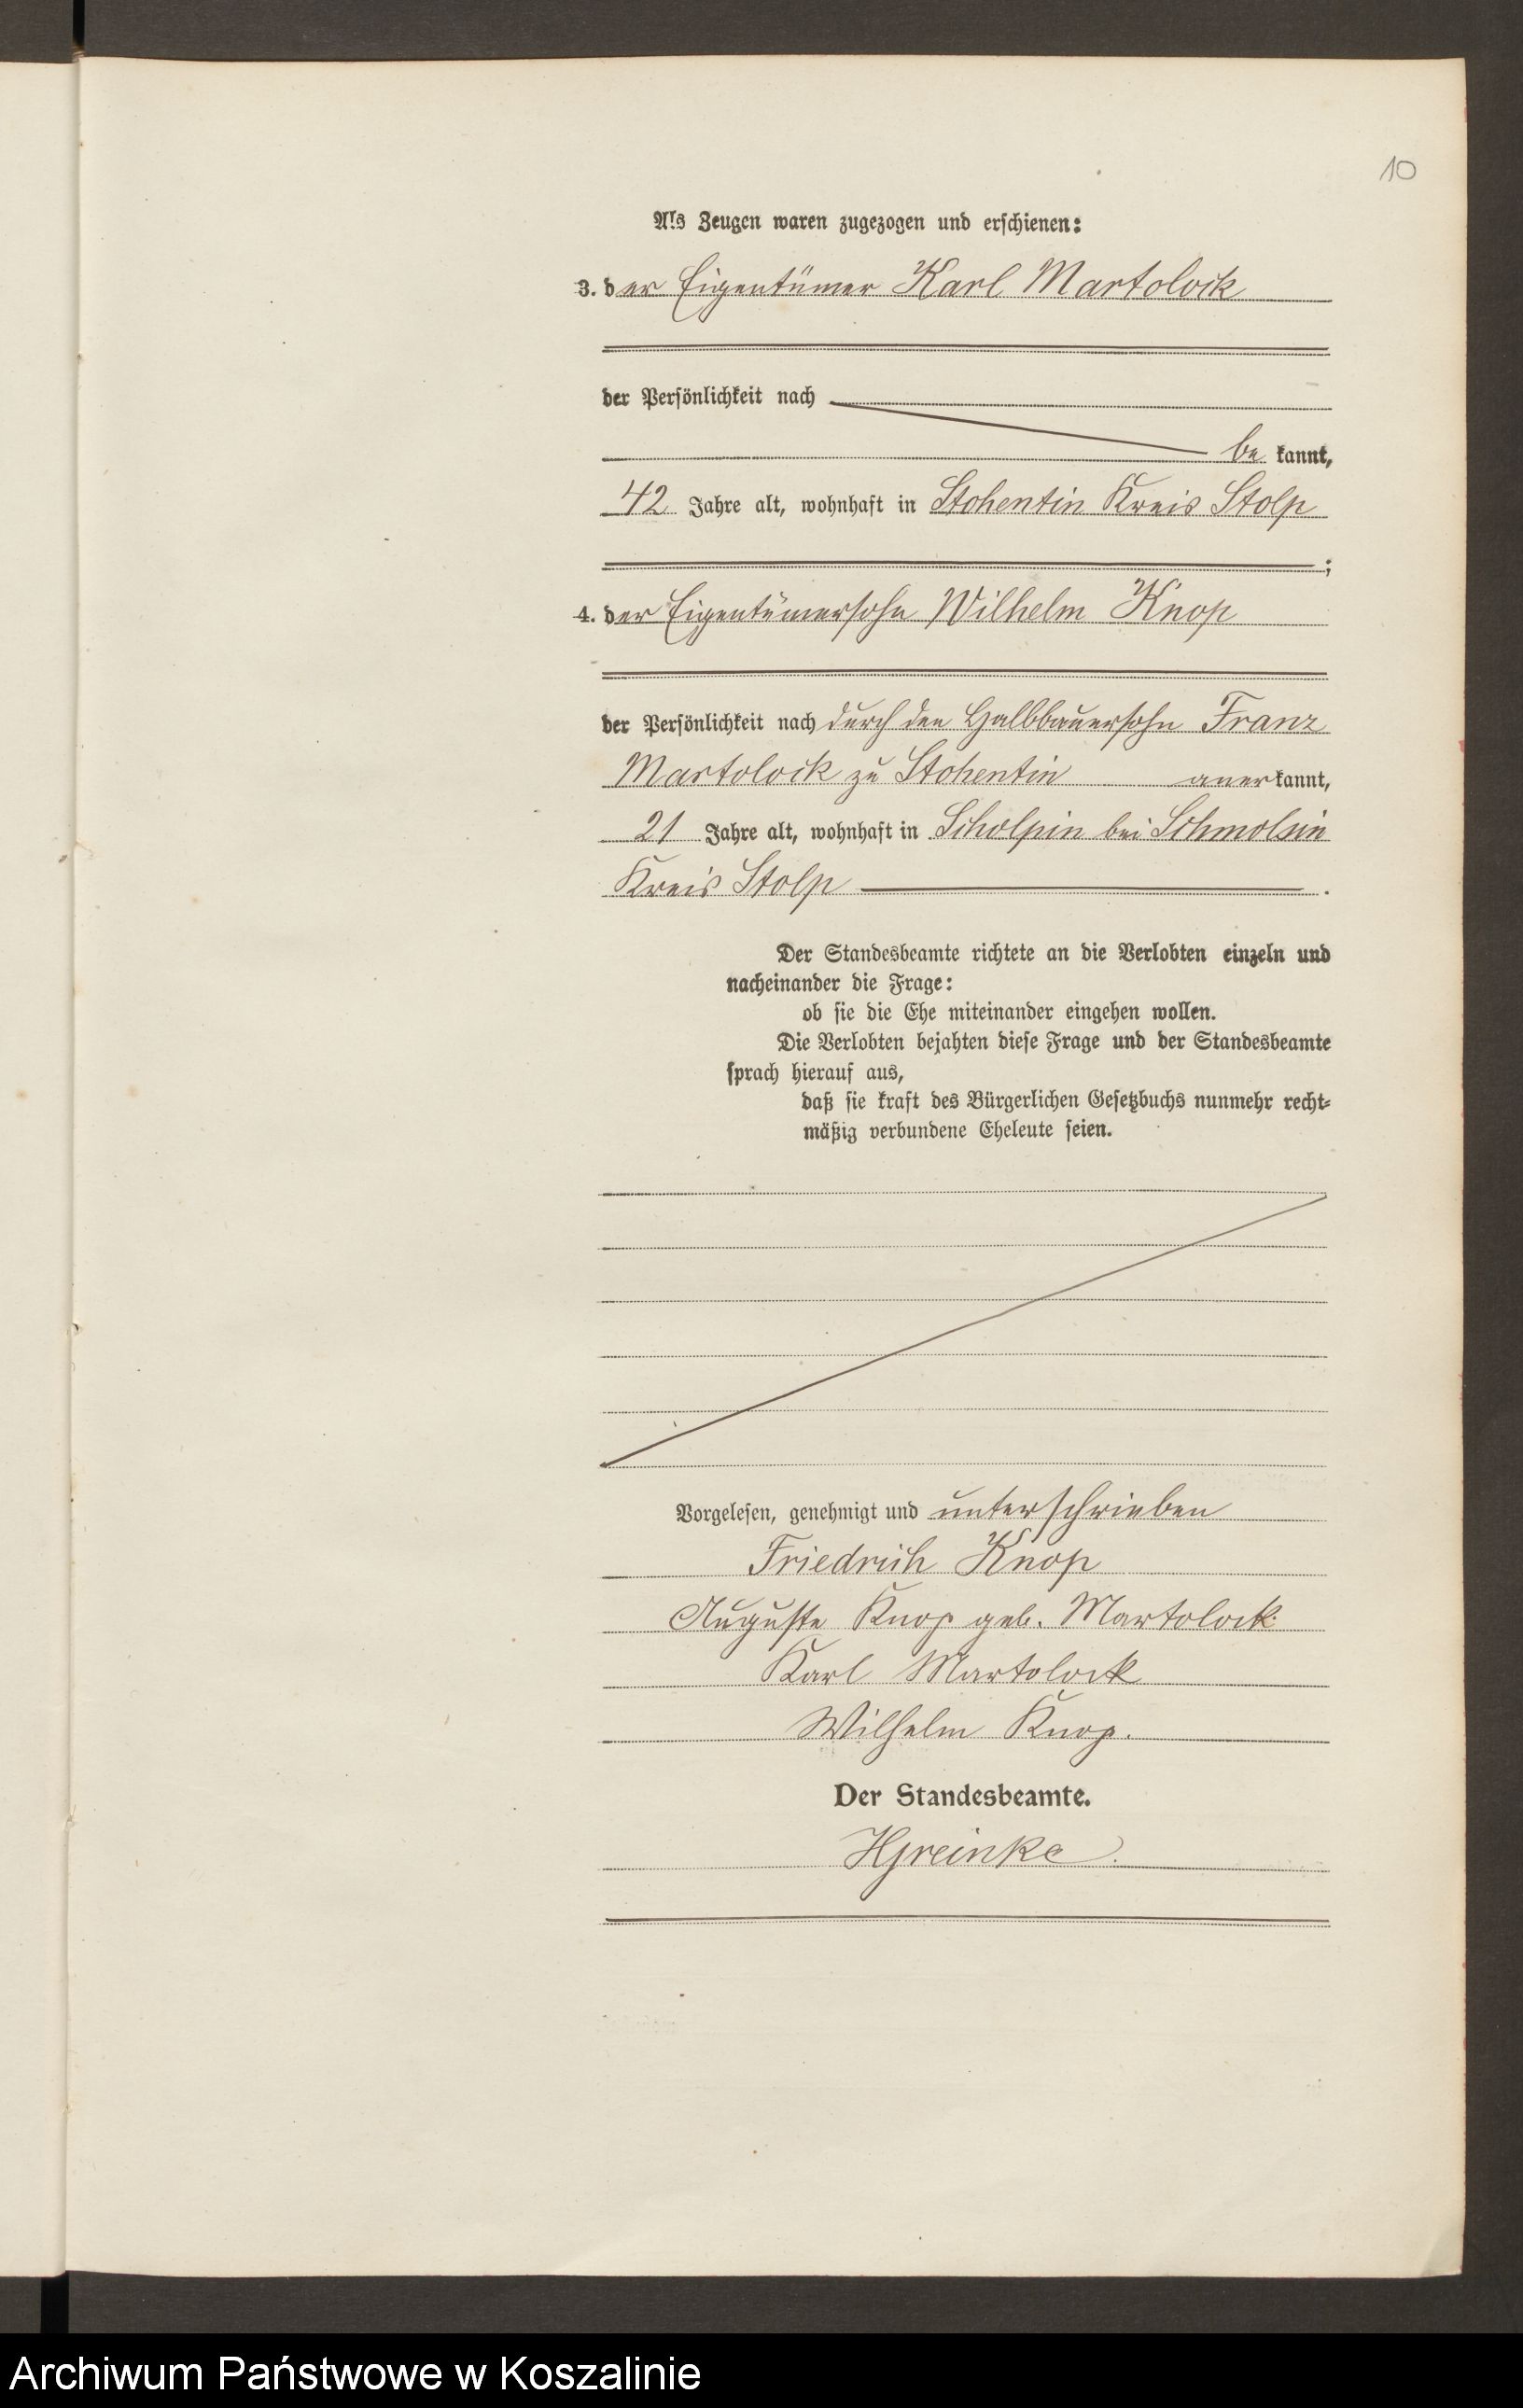 10
Als Zeugen waren zugezogen und erschienen:
3. der Eigentümer Karl Martolock
der Persönlichkeit nach
be kannt,
42 Jahre alt, wohnhaft in Stohentin Kreis Stolp
;
4. der Eigentümersohn Wilhelm Knop
der Persönlichkeit nach durch den Halbbauersohn Franz
Martolock zu Stohentin anerkannt,
21 Jahre alt, wohnhaft in Scholpin bei Schmolsin
Kreis Stolp .
Der Standesbeamte richtete an die Verlobten einzeln und
nacheinander die Frage:
ob sie die Ehe miteinander eingehen wollen.
Die Verlobten bejahten diese Frage und der Standesbeamte
sprach hierauf aus,
daß sie kraft des Bürgerlichen Gesetzbuchs nunmehr recht-
mäßig verbundene Eheleute seien.
Vorgelesen, genehmigt und unterschrieben
Friedrich Knop
Auguste Knop geb. Martolock
Karl Martolock
Wilhelm Knop.
Der Standesbeamte.
HGreinke.
Archiwum Państwowe w Koszalinie